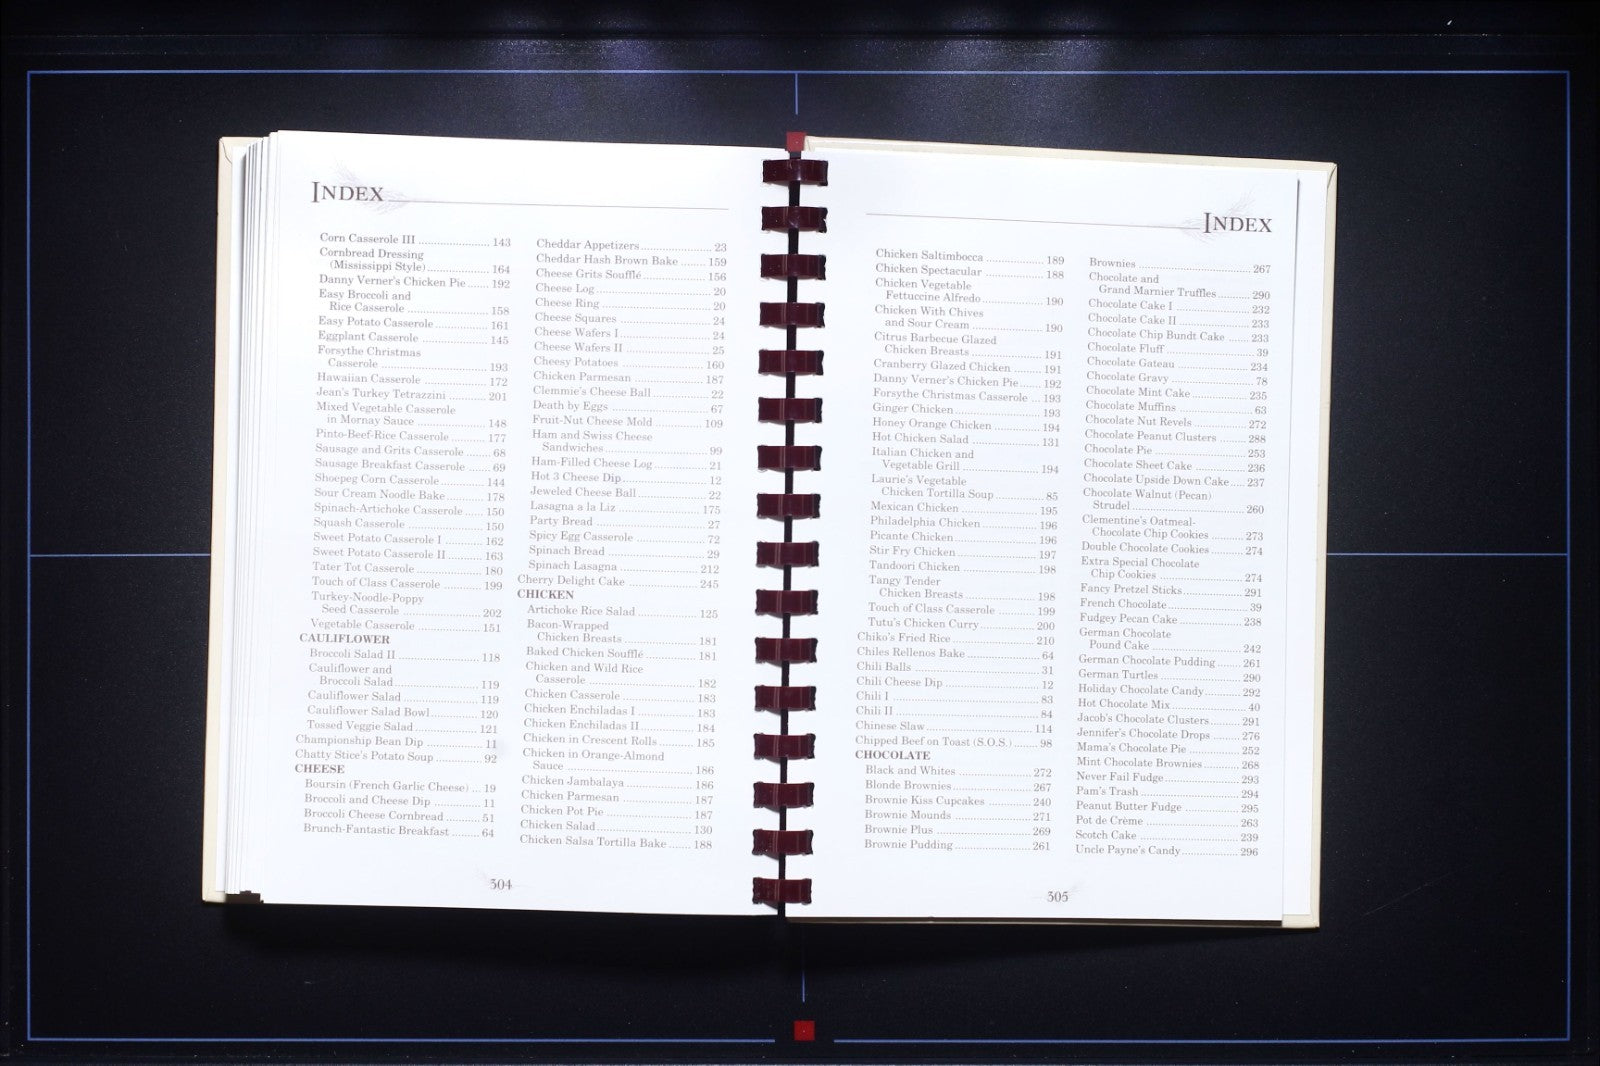 INDEX
Corn Casserole III ........ 143
Cornbread Dressing
(Mississippi Style) ........ 164
Danny Verner's Chicken Pie ...... 192
Easy Broccoli and
Rice Casserole ........ 158
Easy Potato Casserole ........ 161
Eggplant Casserole ........ 145
Forsythe Christmas
Casserole ........ 193
Hawaiian Casserole ........ 172
Jean's Turkey Tetrazzini ........ 201
Mixed Vegetable Casserole
in Mornay Sauce ........ 148
Pinto-Beef-Rice Casserole ........ 177
Sausage and Grits Casserole ..... 68
Sausage Breakfast Casserole ..... 69
Shoepeg Corn Casserole ........ 144
Sour Cream Noodle Bake ........ 178
Spinach-Artichoke Casserole ..... 150
Squash Casserole ........ 150
Sweet Potato Casserole I ........ 162
Sweet Potato Casserole II ........ 163
Tater Tot Casserole ........ 180
Touch of Class Casserole ........ 199
Turkey-Noodle-Poppy
Seed Casserole ........ 202
Vegetable Casserole ........ 151
CAULIFLOWER
Broccoli Salad II ........ 118
Cauliflower and
Broccoli Salad ........ 119
Cauliflower Salad ........ 119
Cauliflower Salad Bowl ........ 120
Tossed Veggie Salad ........ 121
Championship Bean Dip ........ 11
Chatty Stice's Potato Soup ........ 92
CHEESE
Boursin (French Garlic Cheese) ... 19
Broccoli and Cheese Dip ........ 11
Broccoli Cheese Cornbread ........ 51
Brunch-Fantastic Breakfast ........ 64
Cheddar Appetizers ........ 23
Cheddar Hash Brown Bake ........ 159
Cheese Grits Soufflé ........ 156
Cheese Log ........ 20
Cheese Ring ........ 20
Cheese Squares ........ 24
Cheese Wafers I ........ 24
Cheese Wafers II ........ 25
Cheesy Potatoes ........ 160
Chicken Parmesan ........ 187
Clemmie's Cheese Ball ........ 22
Death by Eggs ........ 67
Fruit-Nut Cheese Mold ........ 109
Ham and Swiss Cheese
Sandwiches ........ 99
Ham-Filled Cheese Log ........ 21
Hot 3 Cheese Dip ........ 12
Jeweled Cheese Ball ........ 22
Lasagna a la Liz ........ 175
Party Bread ........ 27
Spicy Egg Casserole ........ 72
Spinach Bread ........ 29
Spinach Lasagna ........ 212
Cherry Delight Cake ........ 245
CHICKEN
Artichoke Rice Salad ........ 125
Bacon-Wrapped
Chicken Breasts ........ 181
Baked Chicken Soufflé ........ 181
Chicken and Wild Rice
Casserole ........ 182
Chicken Casserole ........ 183
Chicken Enchiladas I ........ 183
Chicken Enchiladas II ........ 184
Chicken in Crescent Rolls ........ 185
Chicken in Orange-Almond
Sauce ........ 186
Chicken Jambalaya ........ 186
Chicken Parmesan ........ 187
Chicken Pot Pie ........ 187
Chicken Salad ........ 130
Chicken Salsa Tortilla Bake ....... 188
304
INDEX
Chicken Saltimbocca ........ 189
Chicken Spectacular ........ 188
Chicken Vegetable
Fettuccine Alfredo ........ 190
Chicken With Chives
and Sour Cream ........ 190
Citrus Barbecue Glazed
Chicken Breasts ........ 191
Cranberry Glazed Chicken ........ 191
Danny Verner's Chicken Pie ..... 192
Forsythe Christmas Casserole ... 193
Ginger Chicken ........ 193
Honey Orange Chicken ........ 194
Hot Chicken Salad ........ 131
Italian Chicken and
Vegetable Grill ........ 194
Laurie's Vegetable
Chicken Tortilla Soup ........ 85
Mexican Chicken ........ 195
Philadelphia Chicken ........ 196
Picante Chicken ........ 196
Stir Fry Chicken ........ 197
Tandoori Chicken ........ 198
Tangy Tender
Chicken Breasts ........ 198
Touch of Class Casserole ........ 199
Tutu's Chicken Curry ........ 200
Chiko's Fried Rice ........ 210
Chiles Rellenos Bake ........ 64
Chili Balls ........ 31
Chili Cheese Dip ........ 12
Chili I ........ 83
Chili II ........ 84
Chinese Slaw ........ 114
Chipped Beef on Toast (S.O.S.) ....... 98
CHOCOLATE
Black and Whites ........ 272
Blonde Brownies ........ 267
Brownie Kiss Cupcakes ........ 240
Brownie Mounds ........ 271
Brownie Plus ........ 269
Brownie Pudding ........ 261
Brownies ........ 267
Chocolate and
Grand Marnier Truffles ........ 290
Chocolate Cake I ........ 232
Chocolate Cake II ........ 233
Chocolate Chip Bundt Cake ...... 233
Chocolate Fluff ........ 39
Chocolate Gateau ........ 234
Chocolate Gravy ........ 78
Chocolate Mint Cake ........ 235
Chocolate Muffins ........ 63
Chocolate Nut Revels ........ 272
Chocolate Peanut Clusters ........ 288
Chocolate Pie ........ 253
Chocolate Sheet Cake ........ 236
Chocolate Upside Down Cake .... 237
Chocolate Walnut (Pecan)
Strudel ........ 260
Clementine's Oatmeal-
Chocolate Chip Cookies ........ 273
Double Chocolate Cookies ........ 274
Extra Special Chocolate
Chip Cookies ........ 274
Fancy Pretzel Sticks ........ 291
French Chocolate ........ 39
Fudgey Pecan Cake ........ 238
German Chocolate
Pound Cake ........ 242
German Chocolate Pudding ....... 261
German Turtles ........ 290
Holiday Chocolate Candy ........ 292
Hot Chocolate Mix ........ 40
Jacob's Chocolate Clusters ........ 291
Jennifer's Chocolate Drops ........ 276
Mama's Chocolate Pie ........ 252
Mint Chocolate Brownies ........ 268
Never Fail Fudge ........ 293
Pam's Trash ........ 294
Peanut Butter Fudge ........ 295
Pot de Crème ........ 263
Scotch Cake ........ 239
Uncle Payne's Candy ........ 296
305